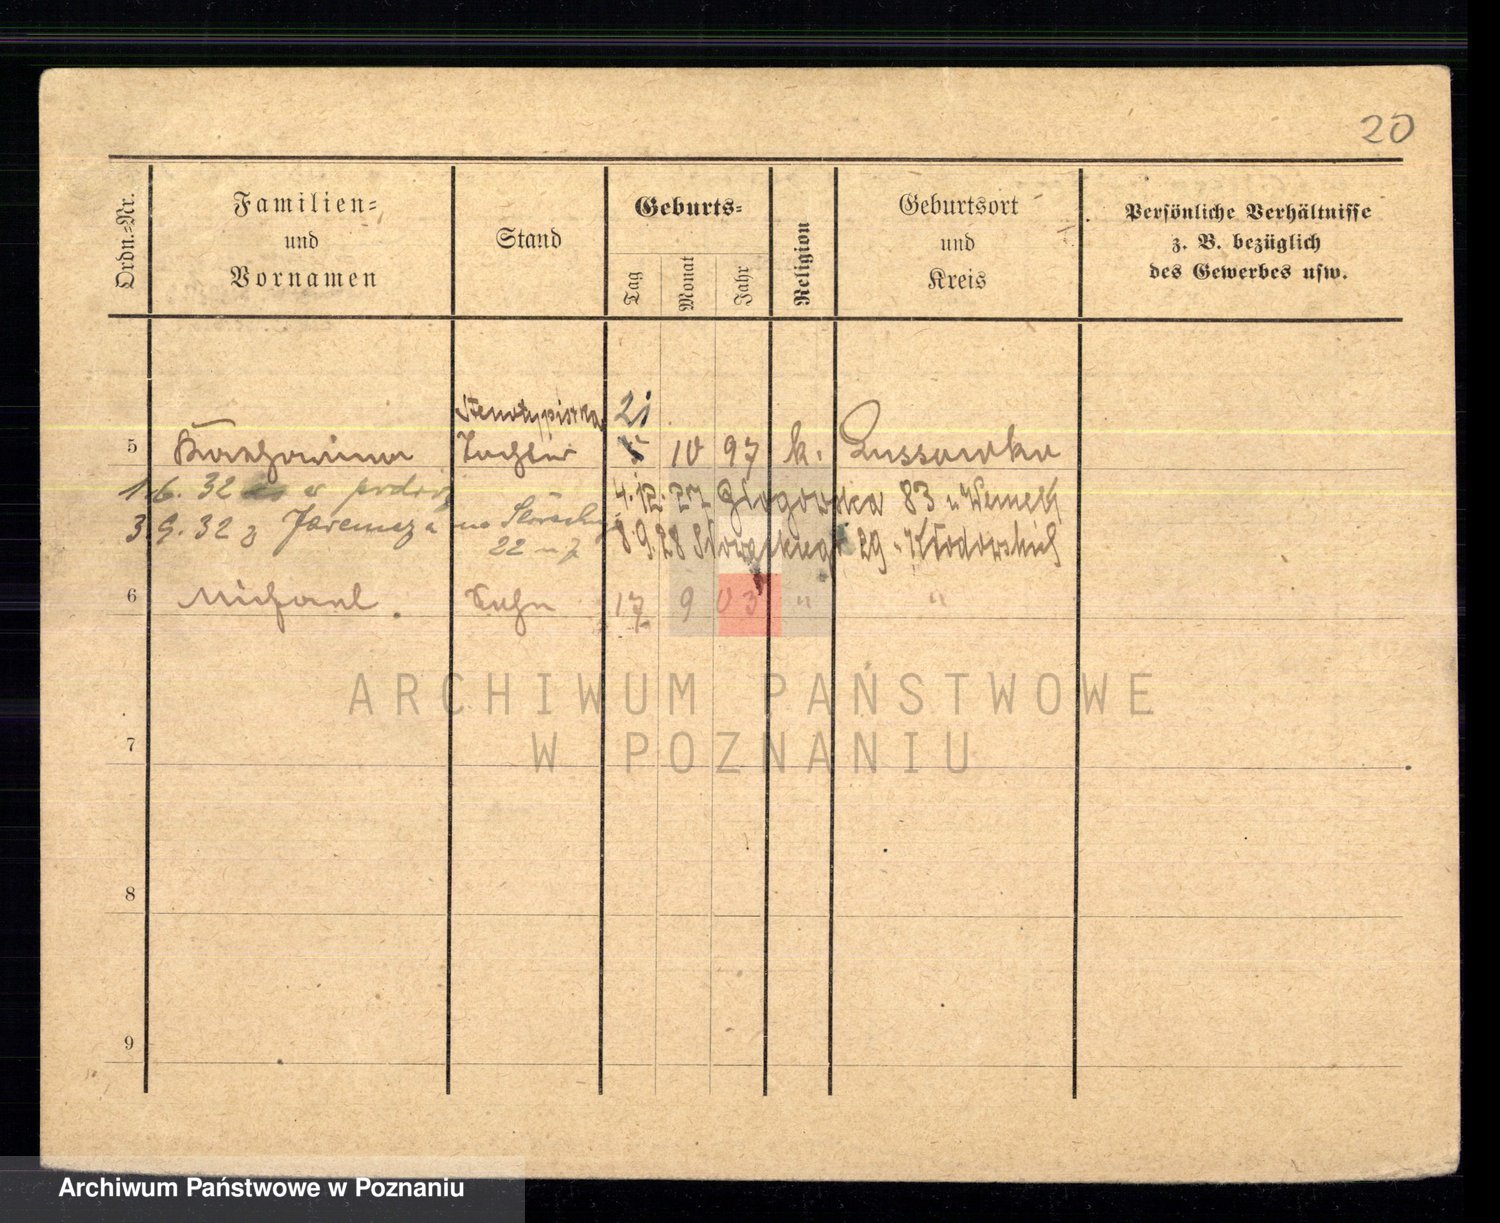 20
Ordn.-Nr.
Familien-
und
Vornamen
Stand
Geburts-
Tag
Monat
Jahr
Religion
Geburtsort
und
Kreis
Persönliche Verhältnisse
z. B. bezüglich
des Gewerbes usw.
Stenotypistka 21
5 Katharina Tochter 10 97 k. Lussowko
1.6.32 4.12.27 Głogowska 83 u
3.9.32 z Jaremcza na 8.9.28 Słowackiego 29
22
6 Michael Sohn 17 9 03 " "
7
8
9
ARCHIWUM PAŃSTWOWE
W POZNANIU
Archiwum Państwowe w Poznaniu